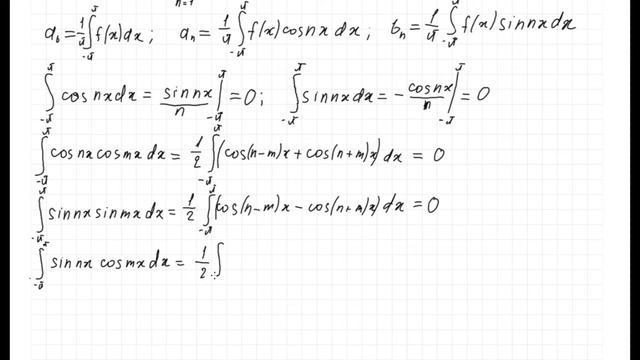 n=1
a₀ = 1/π ∫_{-π}^{π} f(x)dx ; aₙ = 1/π ∫_{-π}^{π} f(x)cosnx dx ; bₙ = 1/π ∫_{-π}^{π} f(x)sinnxdx
∫_{-π}^{π} cosnxdx = sinnx/n |_{-π}^{π} = 0 ; ∫_{-π}^{π} sinnxdx = - cosnx/n |_{-π}^{π} = 0
∫_{-π}^{π} cosnxcosmxdx = 1/2 ∫_{-π}^{π} (cos(n-m)x + cos(n+m)x)dx = 0
∫_{-π}^{π} sinnxsinmxdx = 1/2 ∫_{-π}^{π} (cos(n-m)x - cos(n+m)x)dx = 0
∫_{-π}^{π} sinnx cosmxdx = 1/2 ∫